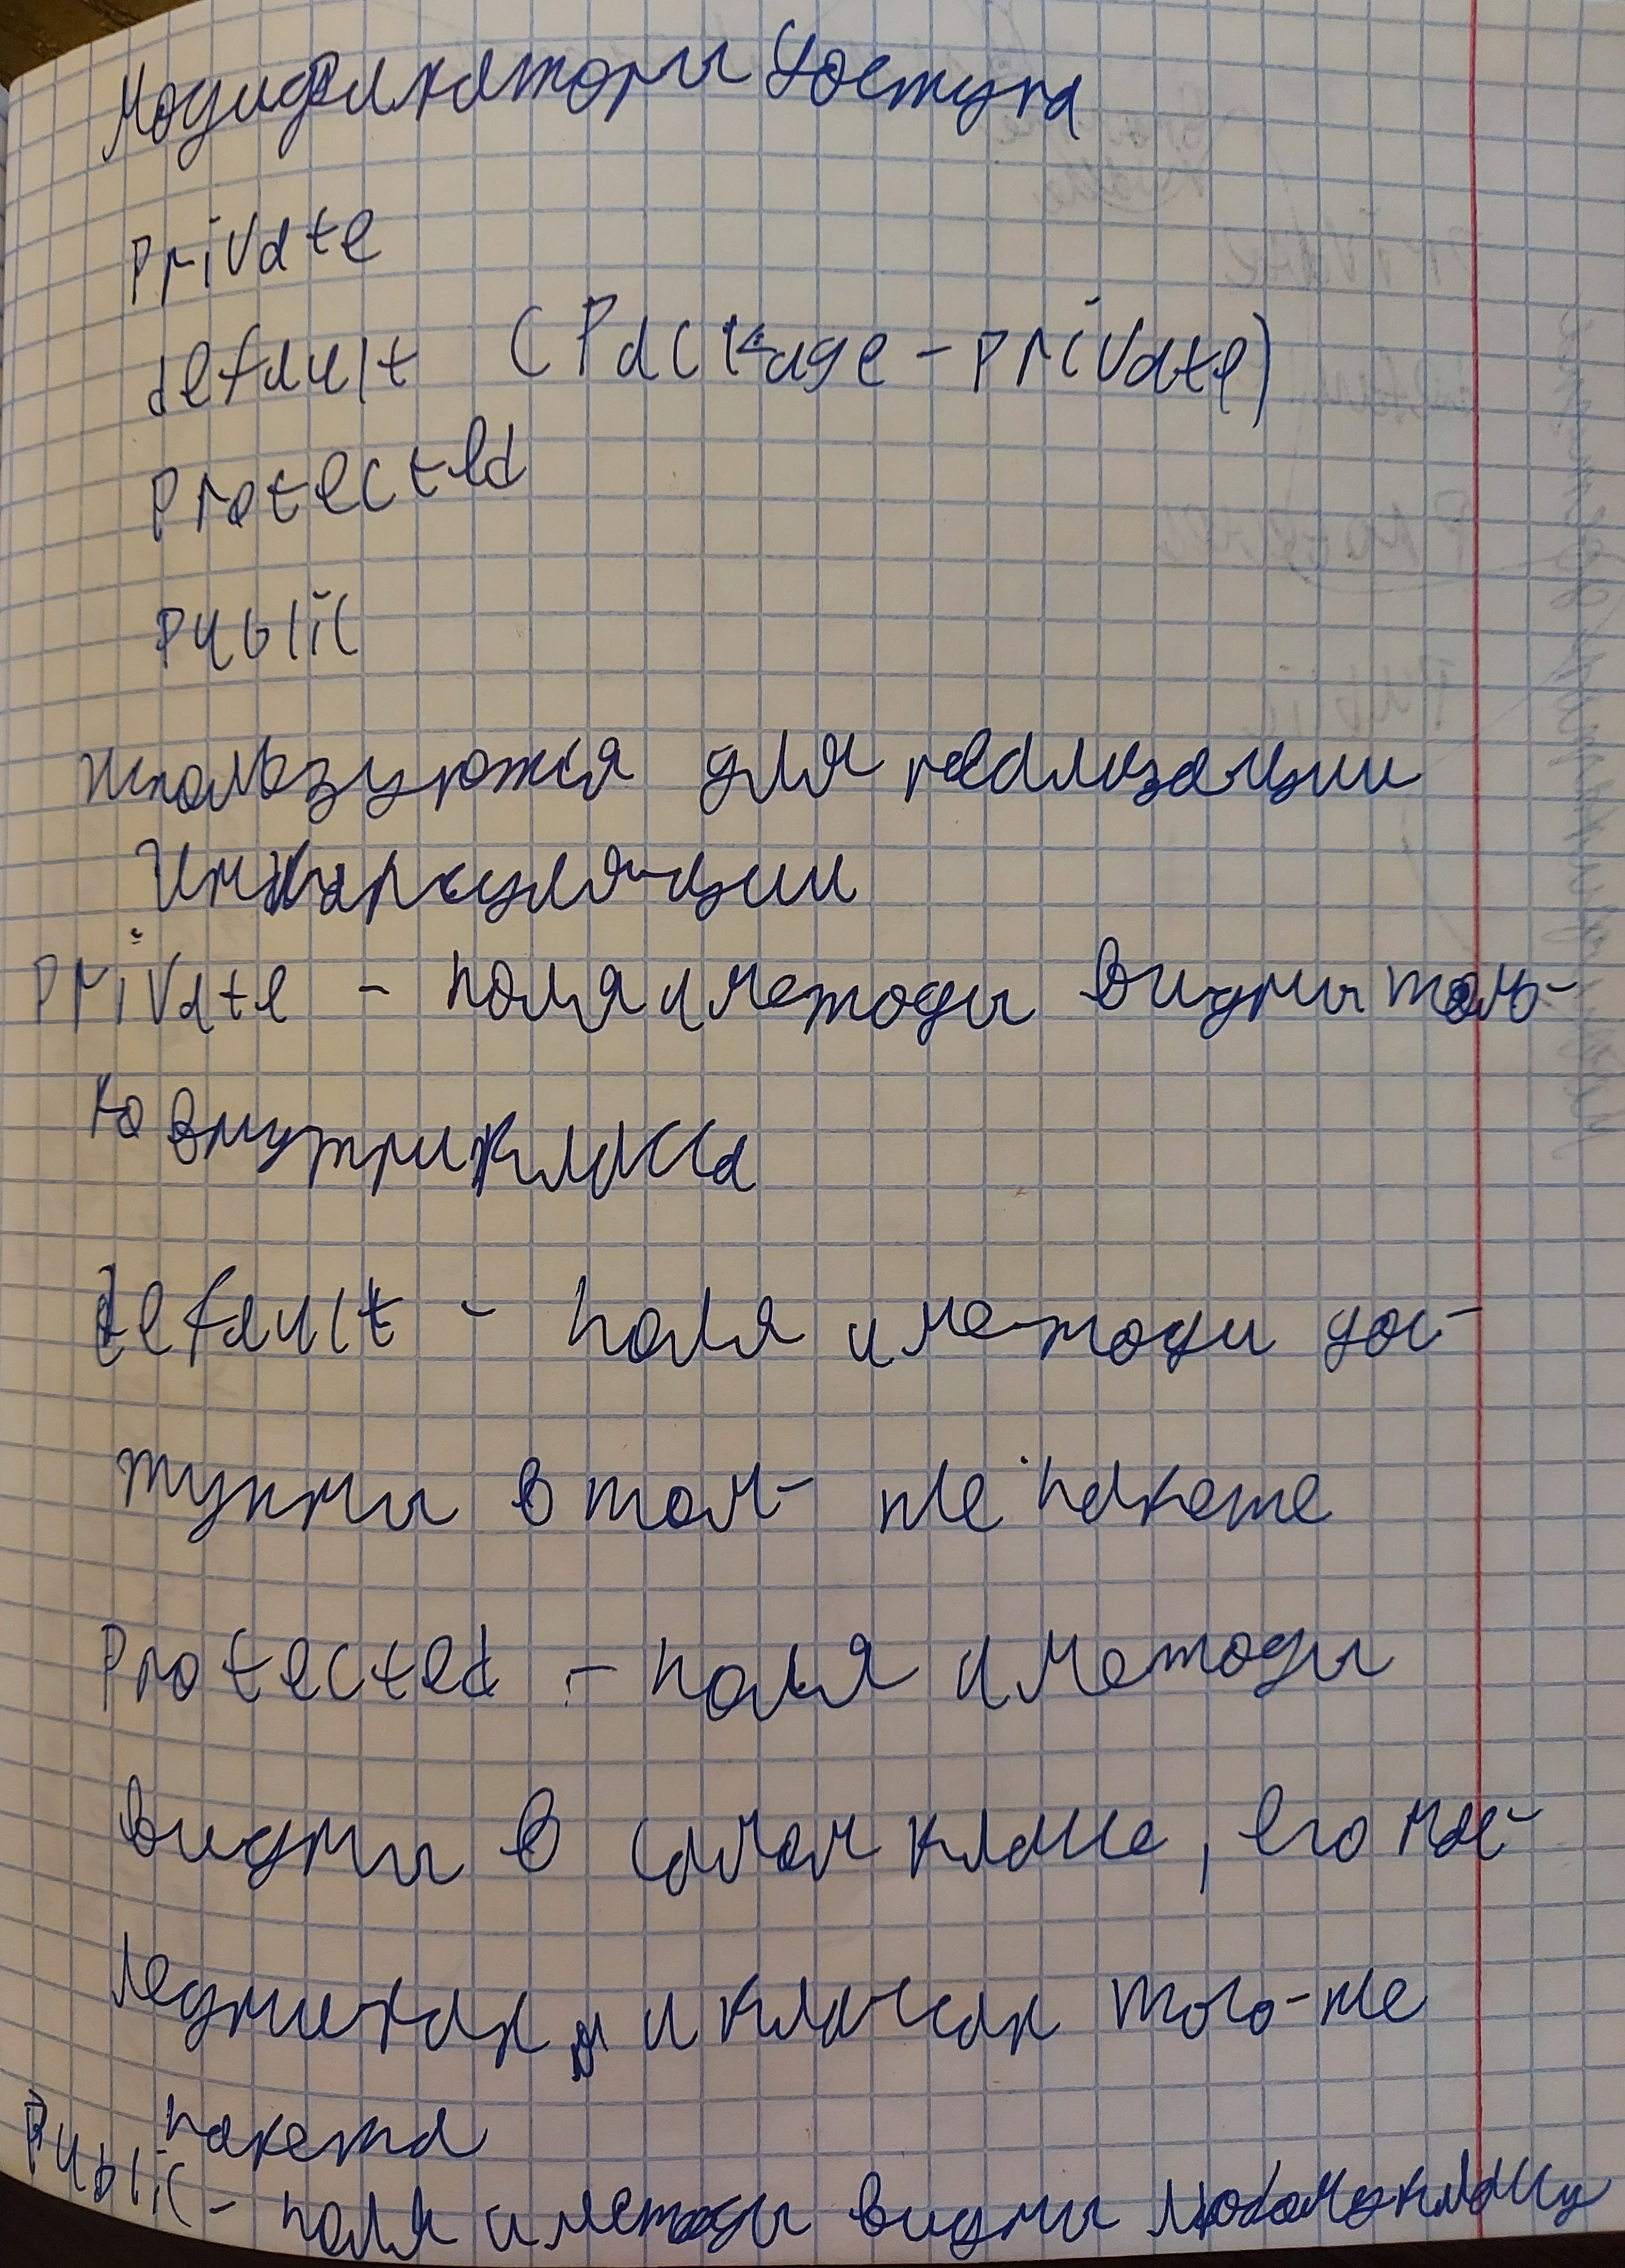 Модификаторы доступа
private
default (Package-private)
protected
public
используются для реализации
Инкапсуляции
private - поля и методы видны толь-
ко внутри класса
default - поля и методы дос-
тупны в том-же пакете
Protected - поля и методы
видны в самом классе, его нас-
ледниках и классах того-же
пакета
Public - поля и методы видны любому классу